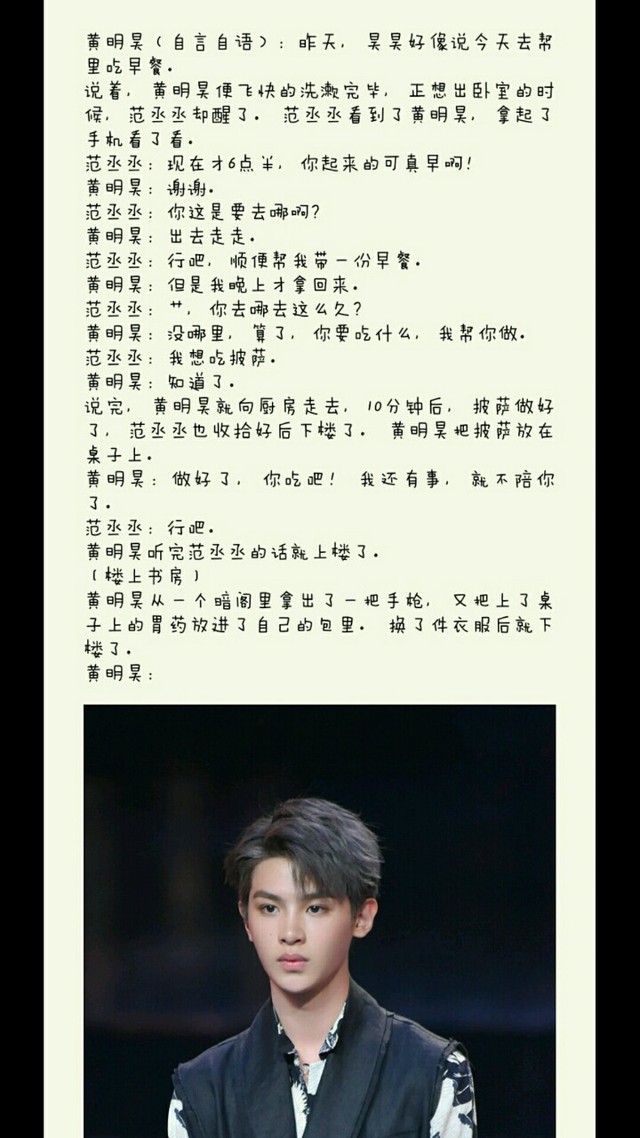 黄明昊（自言自语）：昨天，昊昊好像说今天去帮
里吃早餐。
说着，黄明昊便飞快的洗漱完毕，正想出卧室的时
候，范丞丞却醒了。范丞丞看到了黄明昊，拿起了
手机看了看。
范丞丞：现在才6点半，你起来的可真早啊！
黄明昊：谢谢。
范丞丞：你这是要去哪啊？
黄明昊：出去走走。
范丞丞：行吧，顺便帮我带一份早餐。
黄明昊：但是我晚上才拿回来。
范丞丞：艹，你去哪去这么久？
黄明昊：没哪里，算了，你要吃什么，我帮你做。
范丞丞：我想吃披萨。
黄明昊：知道了。
说完，黄明昊就向厨房走去，10分钟后，披萨做好
了，范丞丞也收拾好后下楼了。黄明昊把披萨放在
桌子上。
黄明昊：做好了，你吃吧！我还有事，就不陪你
了。
范丞丞：行吧。
黄明昊听完范丞丞的话就上楼了。
（楼上书房）
黄明昊从一个暗阁里拿出了一把手枪，又把上了桌
子上的胃药放进了自己的包里。换了件衣服后就下
楼了。
黄明昊：